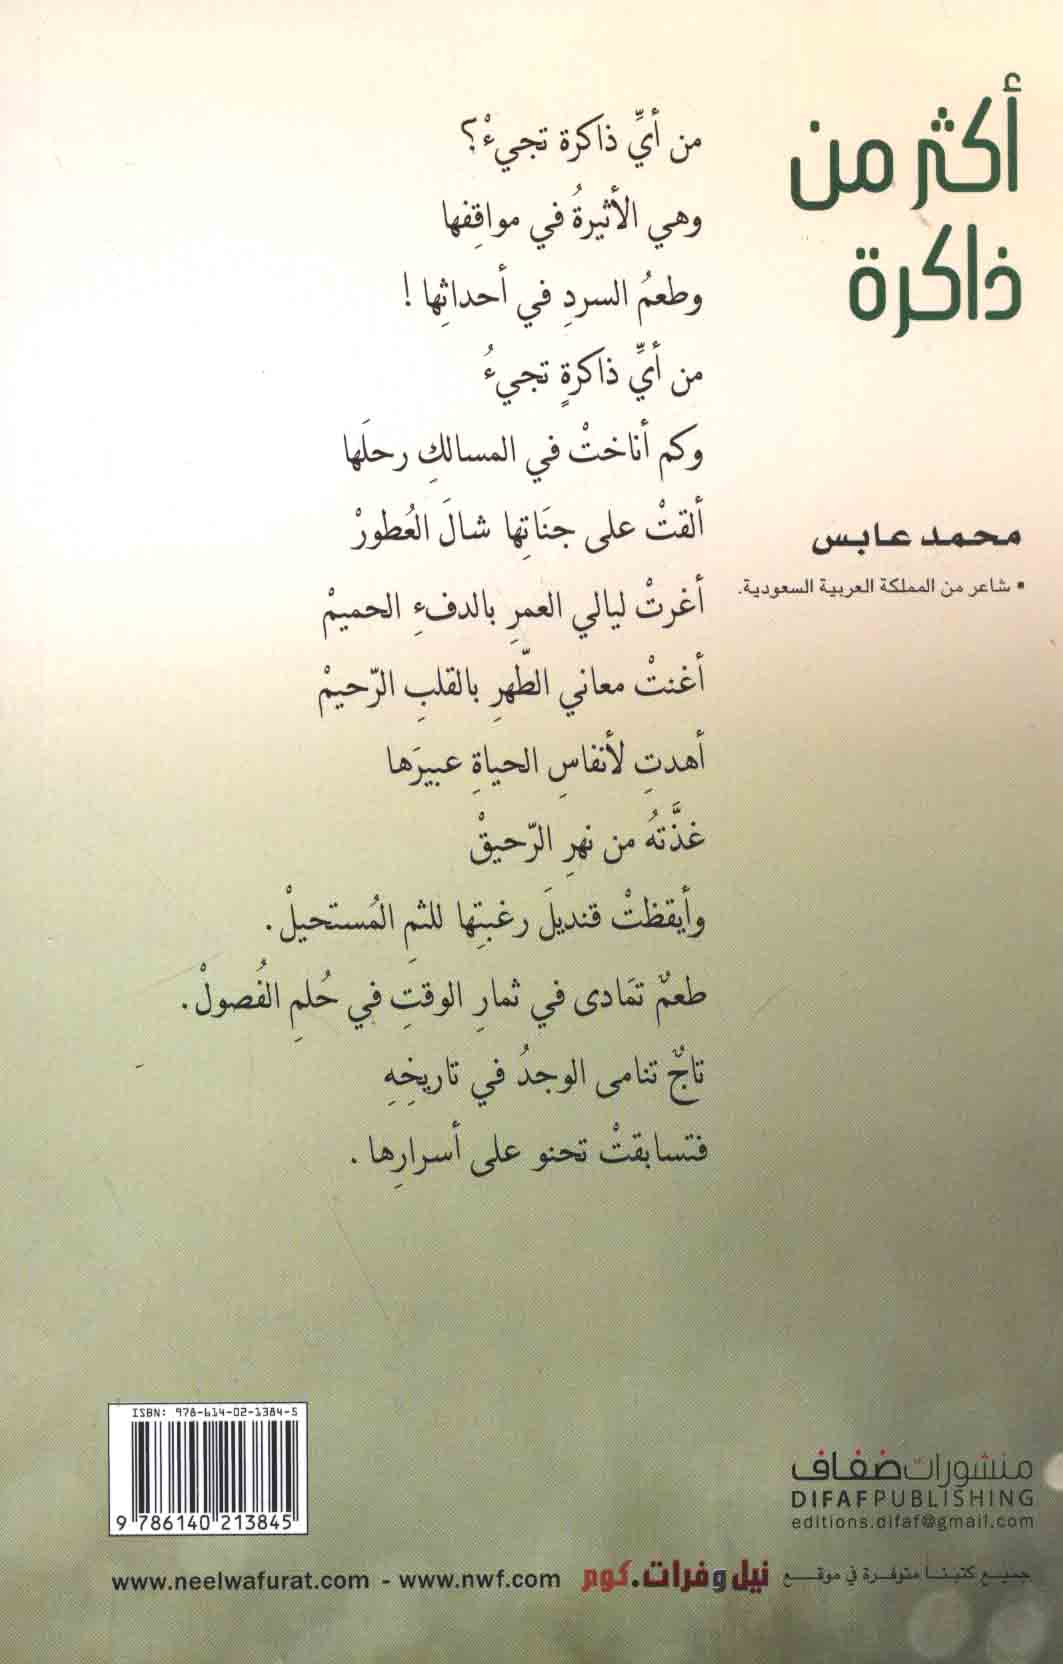 أكثر من
ذاكرة
محمد عابس
• شاعر من المملكة العربية السعودية.
من أيِّ ذاكرة تجيءْ؟
وهي الأثيرةُ في مواقِفها
وطعمُ السردِ في أحداثِها !
من أيِّ ذاكرةٍ تجيءُ
وكم أناختْ في المسالكِ رحلَها
ألقتْ على جنَاتِها شالَ العُطورْ
أغرتْ ليالي العمرِ بالدفءِ الحميمْ
أغنتْ معاني الطّهرِ بالقلبِ الرّحيمْ
أهدتِ لأنفاسِ الحياةِ عبيرَها
غذَّتهُ من نهرِ الرّحيقْ
وأيقظتْ قنديلَ رغبتِها للثمِ المُستحيلْ.
طعمٌ تمَادى في ثمارِ الوقتِ في حُلمِ الفُصولْ.
تاجٌ تنامى الوجدُ في تاريخِهِ
فتسابقتْ تحنو على أسرارِها .
ISBN: 978-614-02-1384-5
9 786140 213845
منشورات ضفاف
DIFAF PUBLISHING
editions.difaf@gmail.com
جميع كتبنا متوفرة في موقع نيل وفرات.كوم www.neelwafurat.com - www.nwf.com